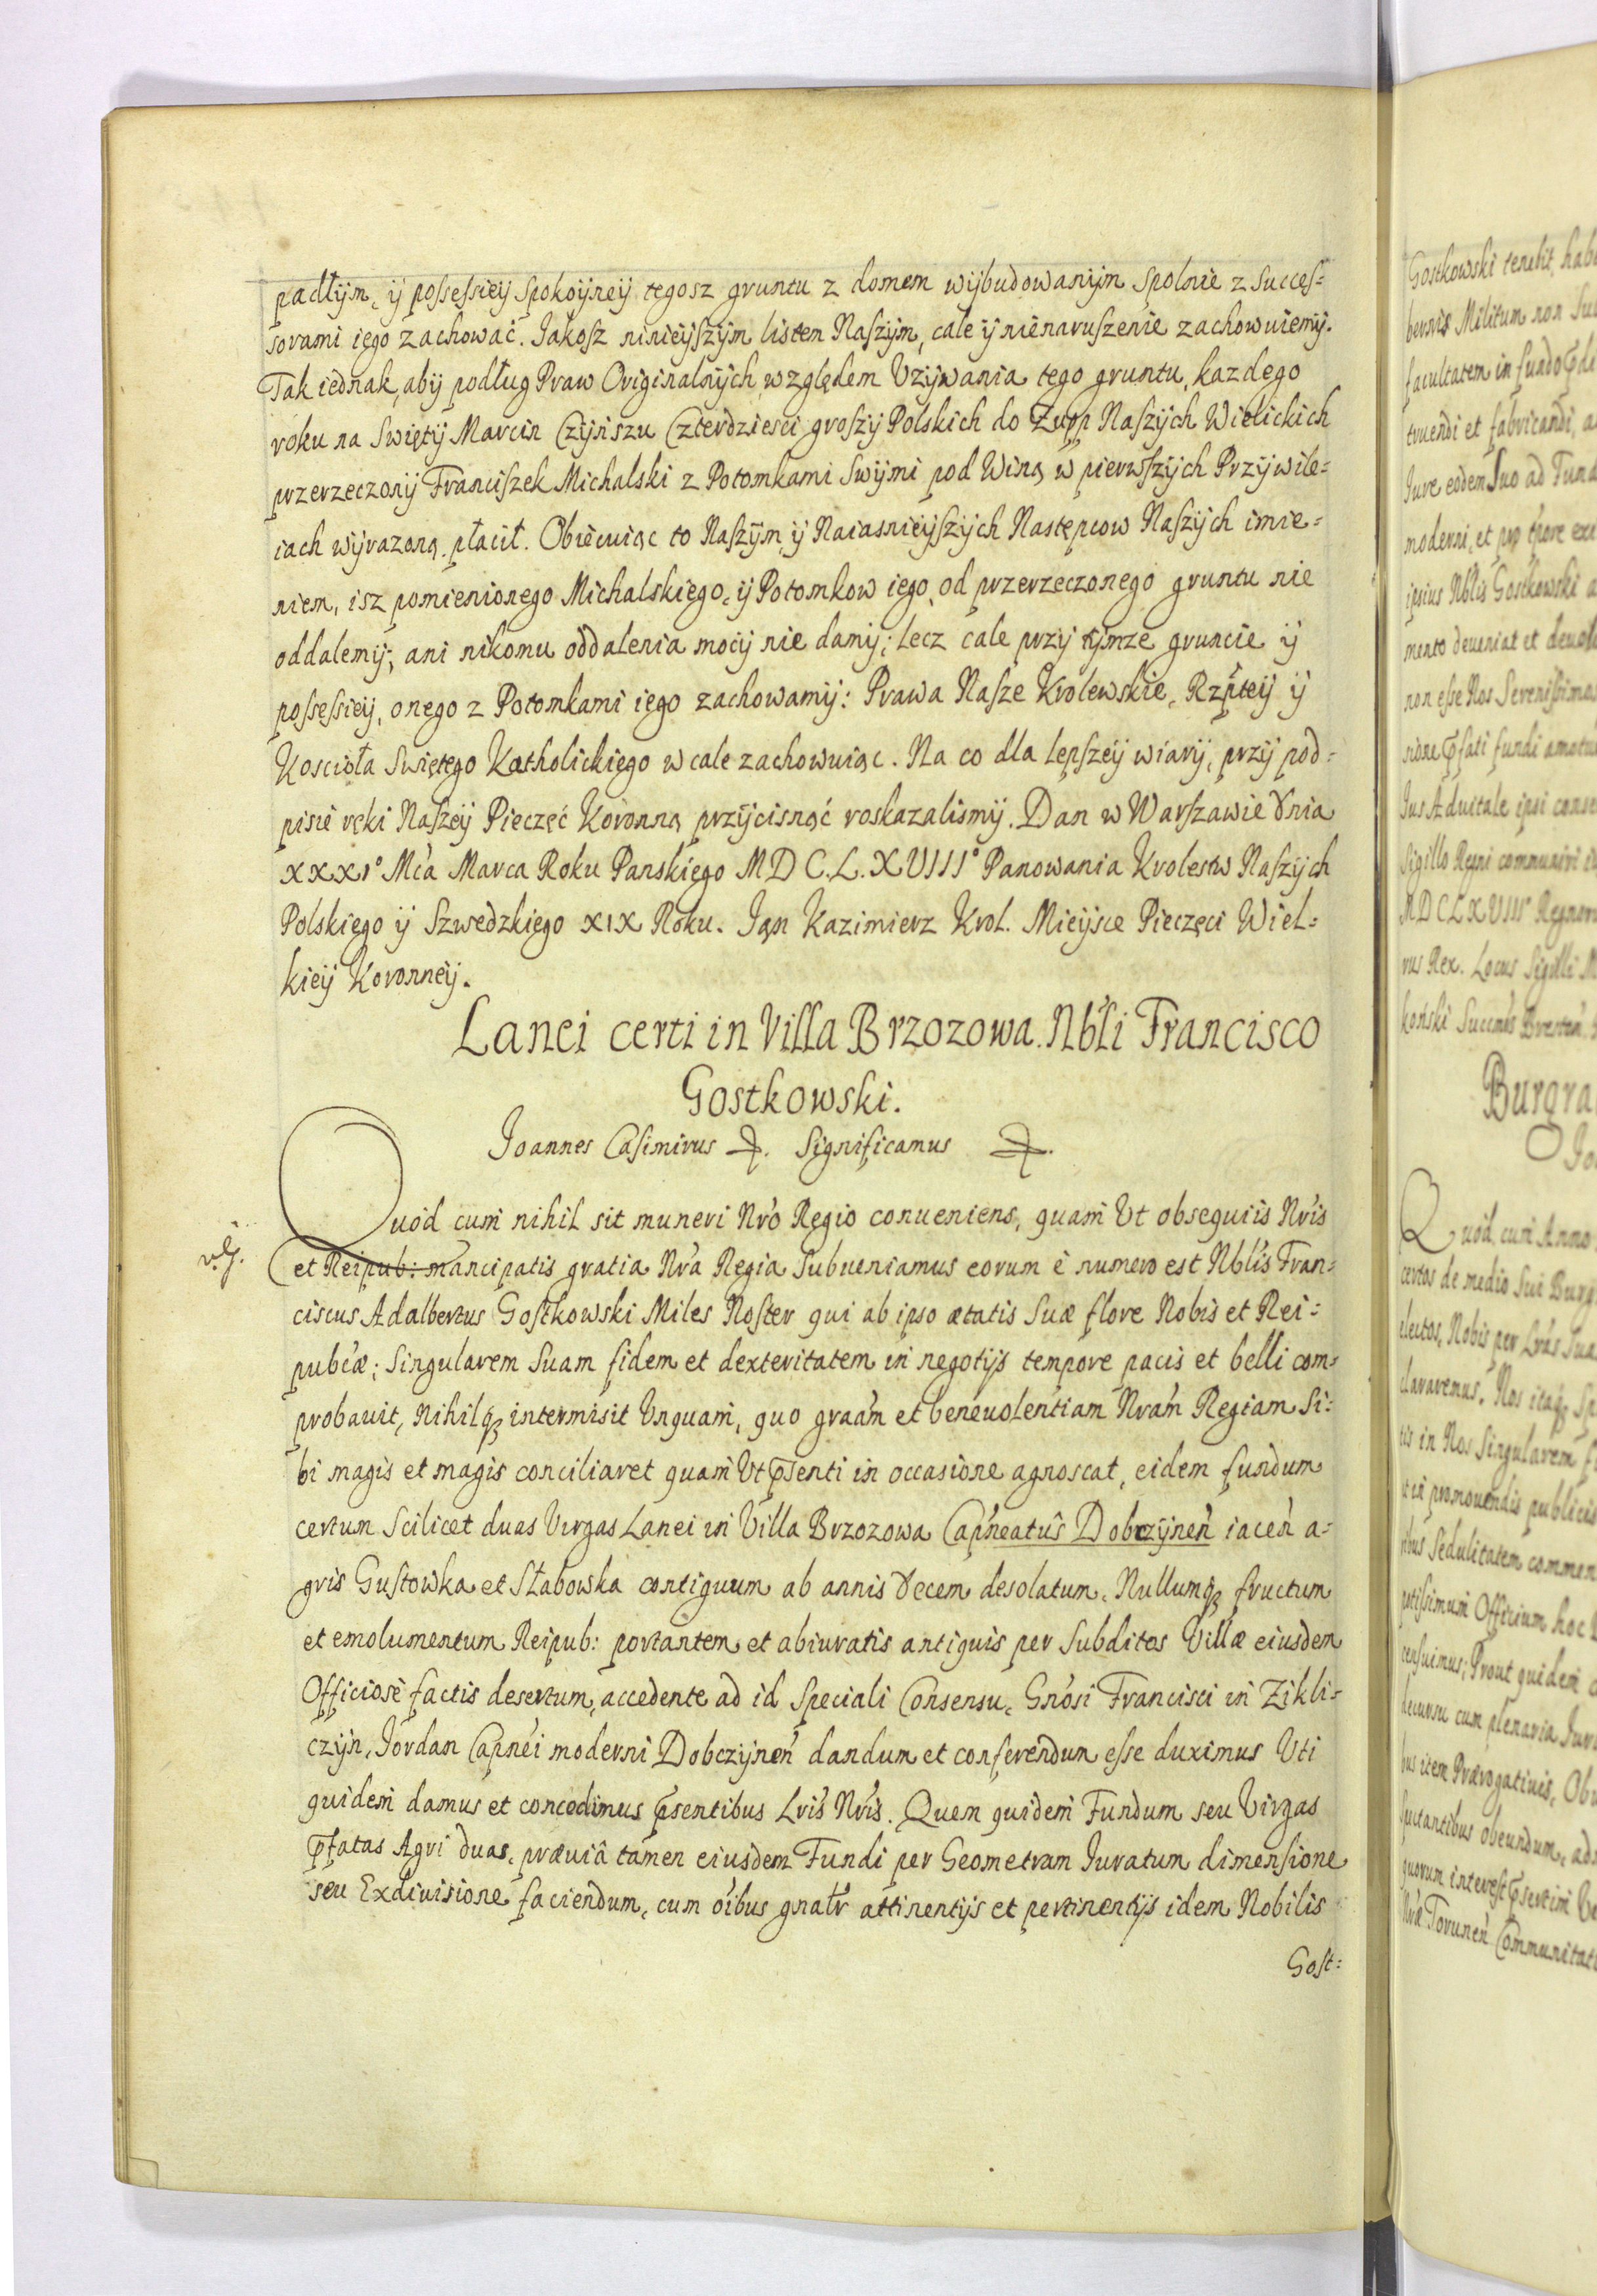 padłym, ÿ possessieÿ spokoÿneÿ tegosz gruntu z domem wÿbudowanÿm spolnie z succes=
sorami iego zachować. Jakosz ninieÿszÿm listem Naszÿm, cale ÿ nienaruszenie zachowuiemÿ.
Tak iednak, abÿ podług Praw Originalnÿch, względem Uzÿwania tego gruntu, kazdego
roku na Swiętÿ Marcin Czÿnszu Czterdziesci groszÿ Polskich do Zupp Naszÿch Wielickich
przerzeczonÿ Franciszek Michalski z Potomkami Swÿmi pod Winą w pierwszÿch Przÿwile=
iach wÿrazoną, płacił. Obiecuiąc to Naszÿm, ÿ Naiasnieÿszÿch Następcow Naszÿch imie=
niem, isz pomienionego Michalskiego, ÿ Potomkow iego, od przerzeczonego gruntu nie
oddalemÿ; ani nikomu oddalenia mocÿ nie damÿ; lecz cale przÿ tÿmze gruncie ÿ
possessieÿ, onego z Potomkami iego zachowamÿ: Prawa Nasze Krolewskie, Rzpteÿ ÿ
Koscioła Swiętego Katholickiego w cale zachowuiąc. Na co dla lepszeÿ wiarÿ, przÿ pod=
pisie ręki Naszeÿ Pieczęć Koronną przÿcisnąć roskazalismÿ. Dan w Warszawie dnia
XXXI° Mca Marca Roku Panskiego MDC.L.XVIII° Panowania Krolestw Naszÿch
Polskiego ÿ Szwedzkiego XIX Roku. Jan Kazimierz Krol. Mieÿsce Pieczęci Wiel=
kieÿ Koronneÿ.
Lanei certi in Villa Brzozowa. Nbli Francisco
Gostkowski.
Joannes Casimirus &. Significamus &.
Quod cum nihil sit muneri Nro Regio conueniens, quam Ut obsequiis Nris
et Reipub: mancipatis gratia Nra Regia Subueniamus eorum è numero est Nblis Fran=
ciscus Adalbertus Gostkowski Miles Noster qui ab ipso ætatis Suæ flore Nobis et Rei=
pubcæ; Singularem Suam fidem et dexteritatem in negotijs tempore pacis et belli com=
probauit, Nihilqȝ intermisit Unquam, quo graam et beneuolentiam Nram Regiam Si=
bi magis et magis conciliaret quam Ut pſenti in occasione agnoscat, eidem fundum
certum Scilicet duas Virgas Lanei in Villa Brzozowa Capneatûs Dobczÿnen iacen a=
gris Gustowka et Słabowska contiguum ab annis decem desolatum, Nullumqȝ fructum
et emolumentum Reipub: portantem et abiuratis antiquis per Subditos Villæ eiusdem
Officiosè factis desertum, accedente ad id Speciali Consensu, Gnosi Francisci in Zikli=
czÿn, Jordan Capnei moderni Dobczÿnen dandum et conferendum esse duximus Uti
quidem damus et concedimus pſentibus Lris Nris. Quem quidem Fundum seu Virgas
pfatas Agri duas, præuiâ tamen eiusdem Fundi per Geometram Juratum dimensione
seu Exdiuisione faciendum, cum oibus gnalr attinentijs et pertinentijs idem Nobilis
Gost=
Gostkowski tenebit, hab
bernis Militum non
facultatem in fundo
truendi et fabricandi, a
Jure eodem Suo ad Fund
moderni, et pro tpore exi
ipsius Nblis Gostkowski a
mento deueniat et
non esse Nos Serenissimos
sione pfati fundi
Jus Aduitale ipsi conse
Sigillo Regni communiri
MDCLXVIII° Regnor
rus Rex. Locus Sigilli M
Burgra
Jo
Quod, cum Anno
certos de medio Sui Burg
electos, Nobis per Lras Sua
clararemus. Nos itaqȝ Sp
tis in Nos Singularem f
promouendis publicis
Sedulitatem commen
Officium hoc
censuimus; Prout quidem
decursu cum plenaria Juri
bus item Prærogatiuis, Ob
obeundum, ad
quorum interest pſertim
Nræ Torunen Communitati